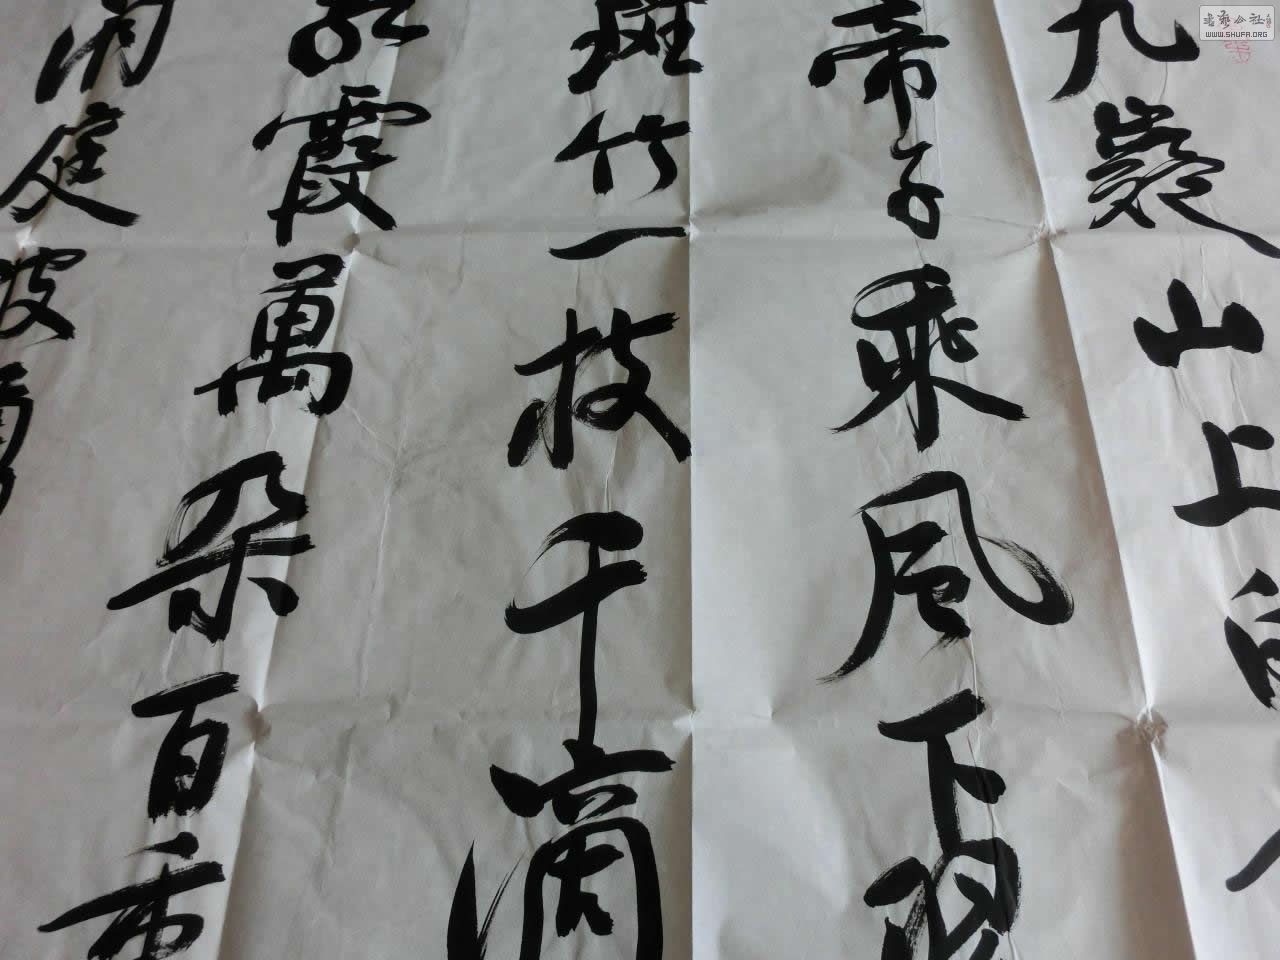 九嶷山上白
帝子乘風下
斑竹一枝千滴
紅霞萬朵百重
洞庭波
書藝公社
WWW.SHUFA.ORG